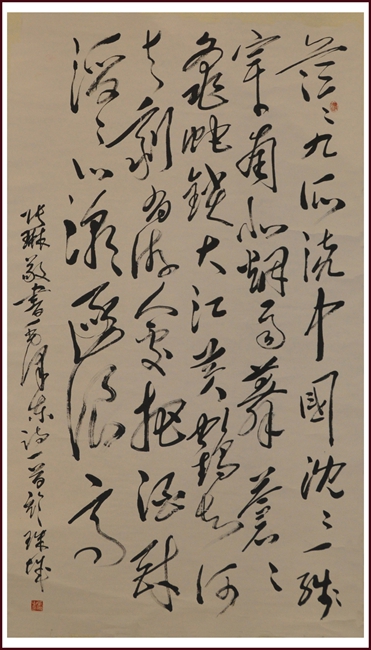 茫〻九派流中國沈〻一線
穿南北煙雨莽蒼〻
龜蛇鎖大江黃鶴知何
去剩有游人處把酒酹
滔〻心潮逐浪高
敬書毛澤東詞一首於珠城